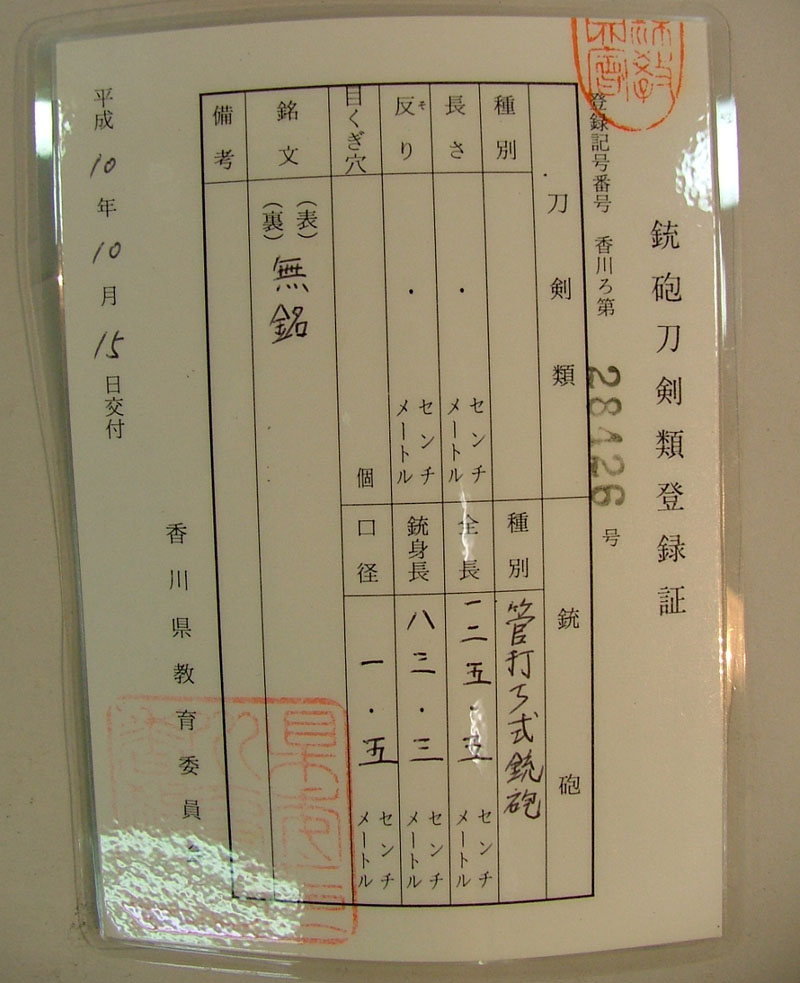 銃砲刀剣類登録証
登録記号番号 香川ろ第 28426 号
刀剣類
種別
長さ ・ センチメートル
反り ・ センチメートル
そ
目くぎ穴 個
銃砲
種別 管打ち式銃砲
全長 一二五・五 センチメートル
銃身長 八三・三 センチメートル
口径 一・五 センチメートル
銘文 (表) (裏) 無銘
備考
平成10年10月15日交付
香川県教育委員